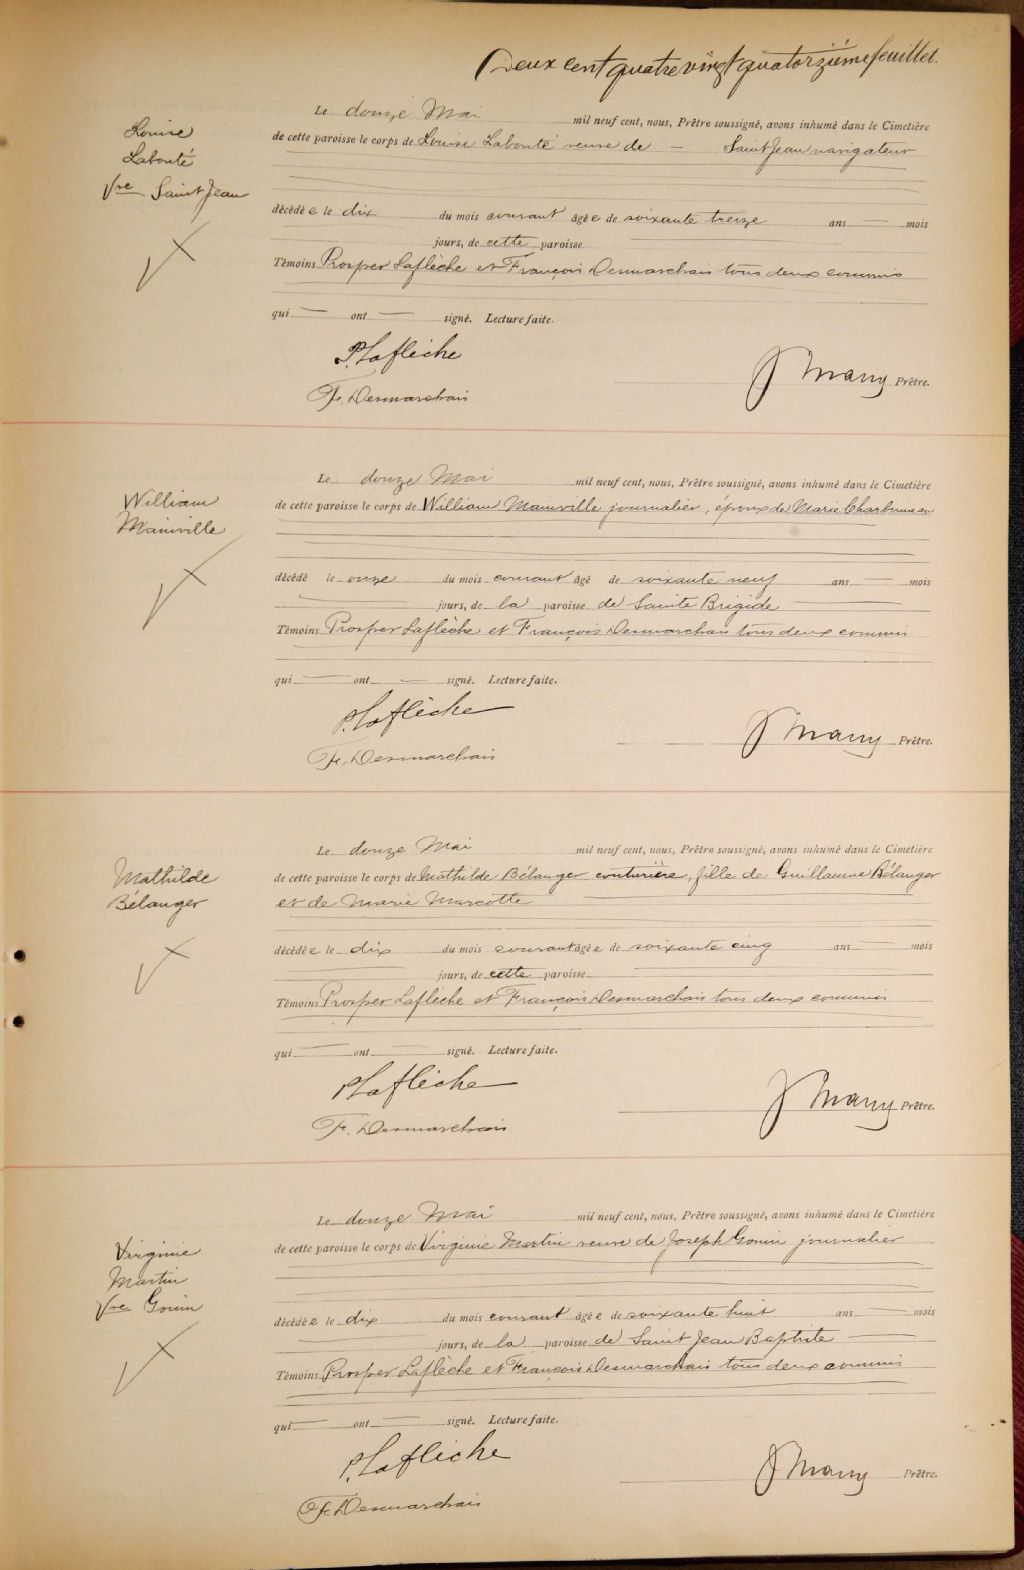 Deux cent quatre vingt quatorzième feuillet.
Louise
Labonté
Vve Saint Jean
Le douze Mai mil neuf cent, nous, Prêtre soussigné, avons inhumé dans le Cimetière
de cette paroisse le corps de Louise Labonté veuve de — Saint Jean navigateur
décédée le dix du mois courant âgée de soixante treize ans — mois
jours, de cette paroisse
Témoins Prosper Laflèche et François Desmarchais tous deux commis
qui — ont — signé. Lecture faite.
P. Laflèche
J Many Prêtre.
F. Desmarchais
William
Mainville
Le douze Mai mil neuf cent, nous, Prêtre soussigné, avons inhumé dans le Cimetière
de cette paroisse le corps de William Mainville journalier, époux de Marie Charbonneau
décédé le onze du mois courant âgé de soixante neuf ans — mois
jours, de la paroisse de Sainte Brigide
Témoins Prosper Laflèche et François Desmarchais tous deux commis
qui — ont — signé. Lecture faite.
P. Laflèche
J Many Prêtre.
F. Desmarchais
Mathilde
Bélanger
Le douze Mai mil neuf cent, nous, Prêtre soussigné, avons inhumé dans le Cimetière
de cette paroisse le corps de Mathilde Bélanger couturière, fille de Guillaume Bélanger
et de Marie Marcotte
décédée le dix du mois courant âgée de soixante cinq ans — mois
jours, de cette paroisse
Témoins Prosper Laflèche et François Desmarchais tous deux commis
qui — ont — signé. Lecture faite.
P Laflèche
J Many Prêtre.
F. Desmarchais
Virginie
Martin
Vve Gouin
Le douze Mai mil neuf cent, nous, Prêtre soussigné, avons inhumé dans le Cimetière
de cette paroisse le corps de Virginie Martin veuve de Joseph Gouin journalier
décédée le dix du mois courant âgée de soixante huit ans — mois
jours, de la paroisse de Saint Jean Baptiste
Témoins Prosper Laflèche et François Desmarchais tous deux commis
qui — ont — signé. Lecture faite.
P. Laflèche
J Many Prêtre.
F. Desmarchais